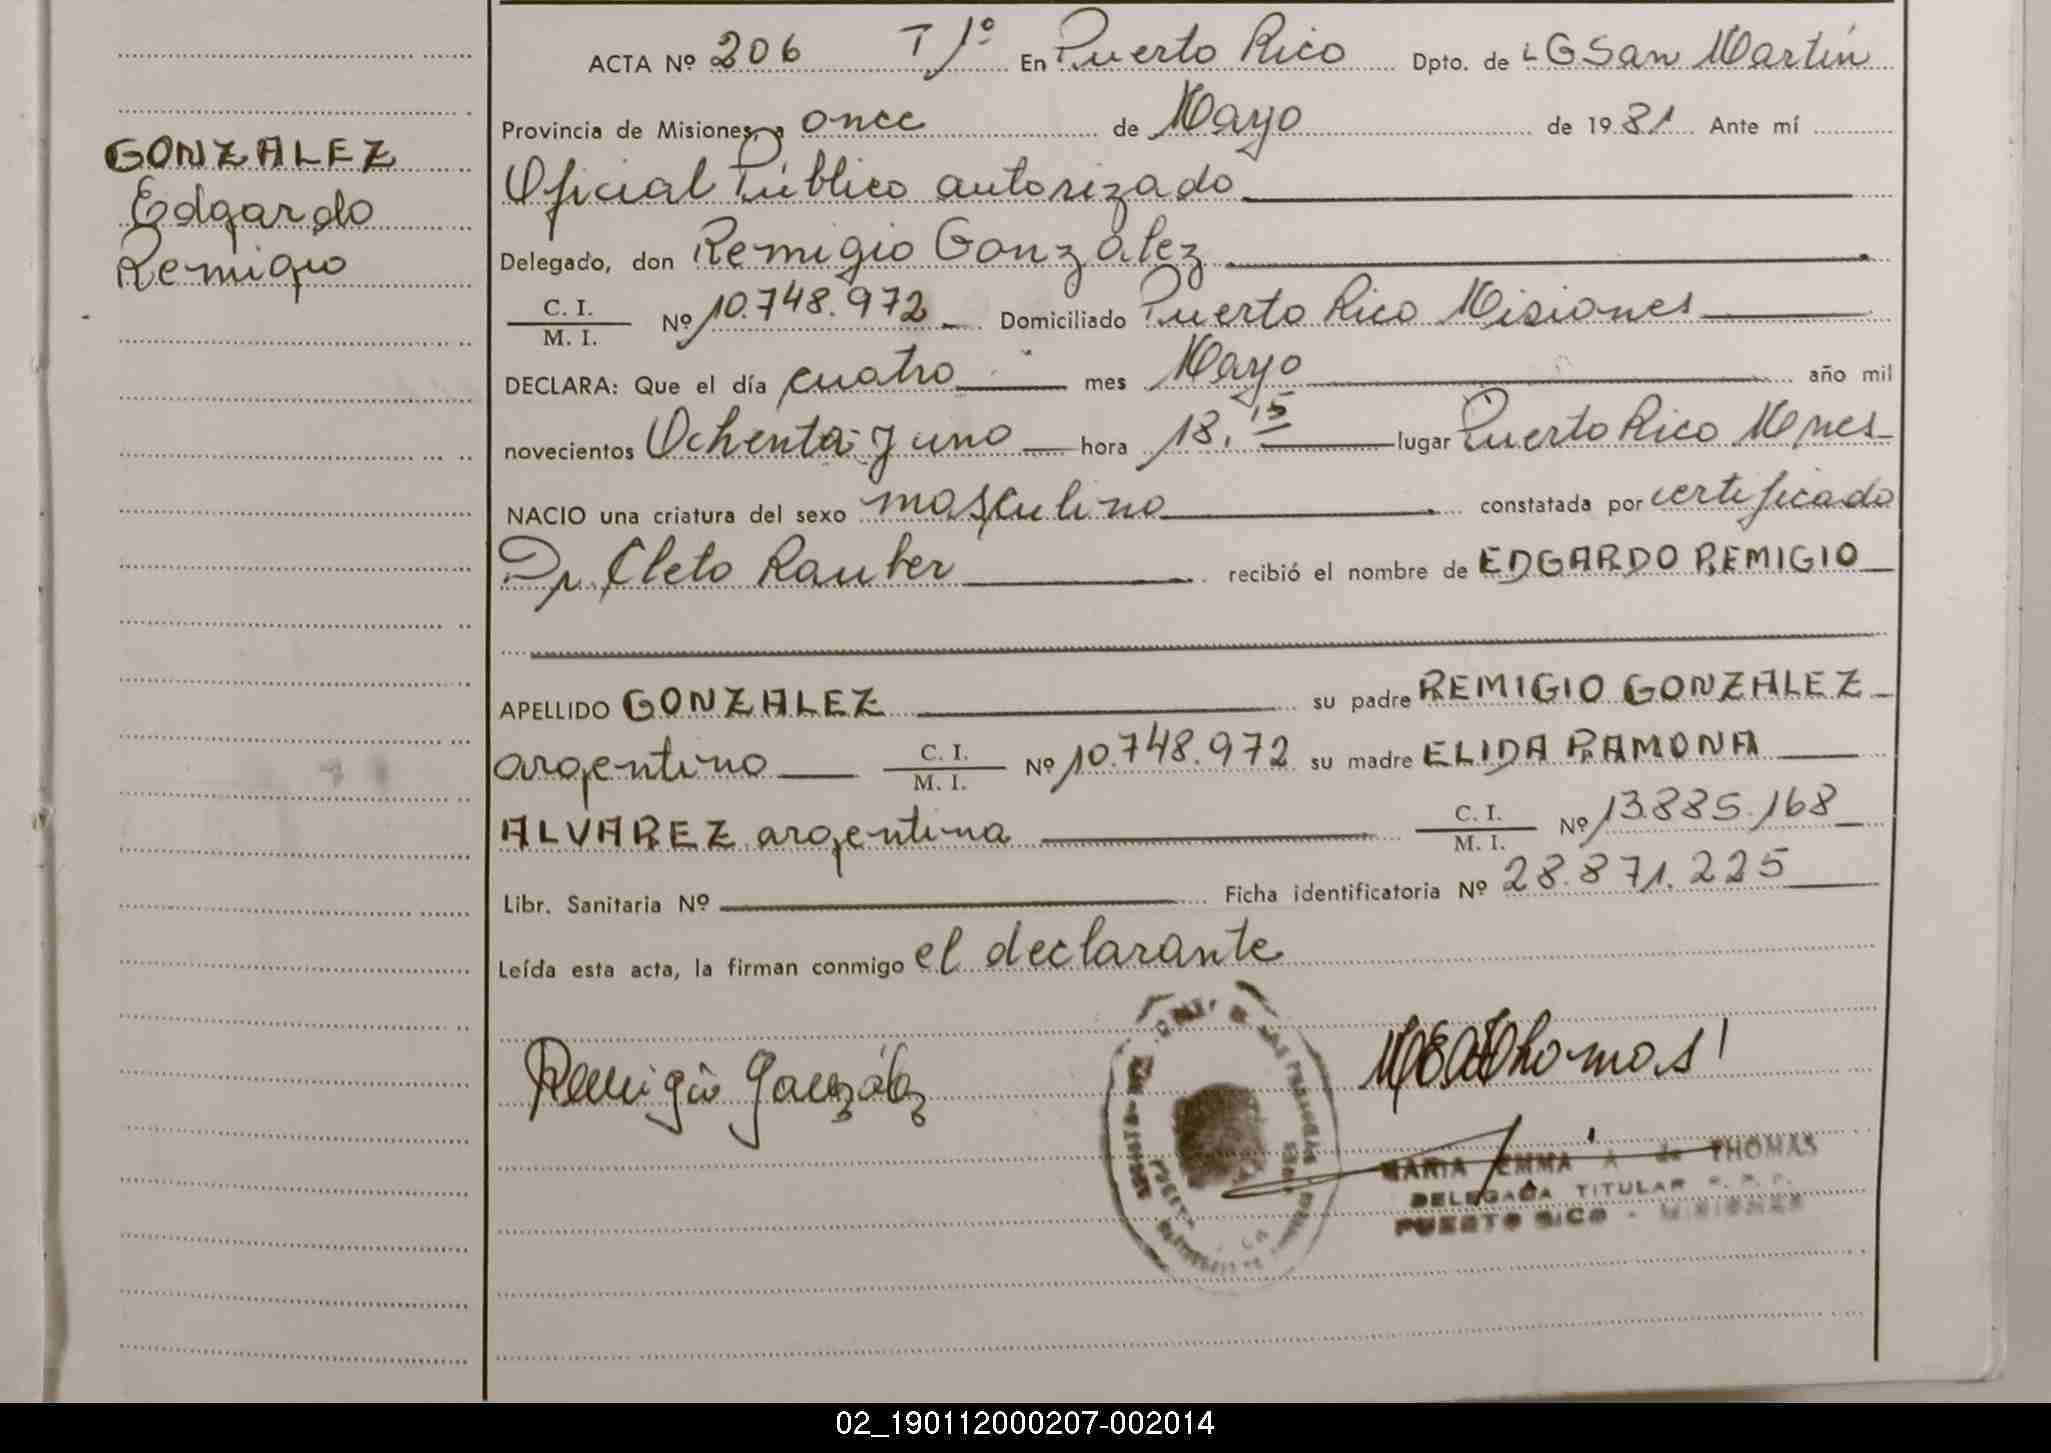 ACTA Nº 206 T 1º En Puerto Rico Dpto. de LG San Martín
Provincia de Misiones, a once de Mayo de 1981 Ante mí
GONZALEZ
Edgardo
Remigio
Oficial Público autorizado
Delegado, don Remigio González
C. I.
M. I.
Nº 10.748.972 Domiciliado Puerto Rico Misiones
DECLARA: Que el día cuatro mes Mayo año mil
novecientos Ochenta y uno hora 18,15 lugar Puerto Rico Mnes
NACIO una criatura del sexo masculino constatada por certificado
Dr. Cleto Rauber recibió el nombre de EDGARDO REMIGIO
APELLIDO GONZALEZ su padre REMIGIO GONZALEZ
argentino C. I. M. I. Nº 10.748.972 su madre ELIDA RAMONA
ALVAREZ argentina C. I. M. I. Nº 13.885.168
Libr. Sanitaria Nº Ficha identificatoria Nº 28.871.225
Leída esta acta, la firman conmigo el declarante
Remigio González
MARIA EMMA A de THOMAS
DELEGADA TITULAR
PUERTO RICO - MISIONES
02_190112000207-002014